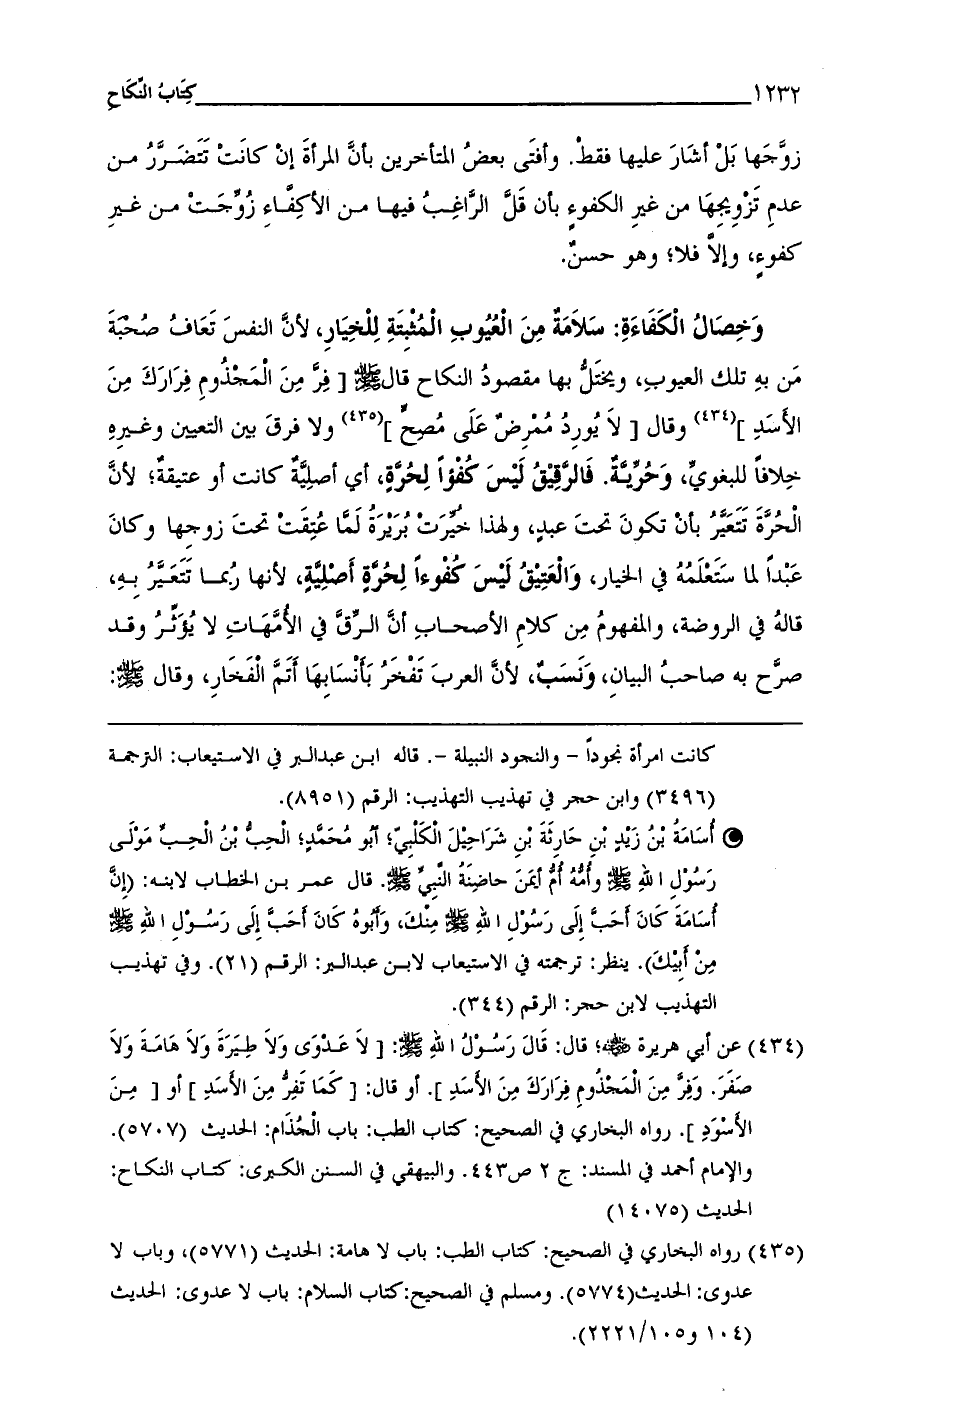 ١٢٣٢ كِتَابُ النِّكَاحِ
زوَّجَها بَلْ أشارَ عليها فقطْ. وأفتَى بعضُ المتأخرين بأنَّ المرأةَ إنْ كانَتْ تَتَضَرَّرُ من
عدمِ تَزْوِيجِهَا من غيرِ الكفوءِ بأن قَلَّ الرَّاغِبُ فيها من الأكِفَّاءِ زُوِّجَتْ من غيرِ
كفوءٍ، وإلاَّ فلا؛ وهو حسنٌ.
وَخِصَالُ الْكَفَاءَةِ: سَلاَمَةٌ مِنَ الْعُيُوبِ الْمُثْبَتَةِ لِلْخِيَارِ، لأنَّ النفسَ تَعَافُ صُحْبَةَ
مَن بهِ تلك العيوبِ، ويختَلُّ بها مقصودُ النكاح قالﷺ [ فِرَّ مِنَ الْمَجْذُومِ فِرَارَكَ مِنَ
الأَسَدِ ](٤٣٤) وقال [ لاَ يُورِدُ مُمْرِضٌ عَلَى مُصِحٍّ ](٤٣٥) ولا فرقَ بين التعيين وغيرِهِ
خِلافاً للبغويِّ، وَحُرِّيَّةٌ. فَالرَّقِيْقُ لَيْسَ كُفْؤاً لِحُرَّةٍ، أي أصليَّةٌ كانت أو عتيقةٌ؛ لأنَّ
الْحُرَّةَ تَتَعَيَّرُ بأنْ تكونَ تحتَ عبدٍ، ولهذا خُيِّرَتْ بُرَيْرَةُ لَمَّا عُتِقَتْ تحتَ زوجها وكانَ
عَبْداً لما سَتَعْلَمُهُ في الخيار، وَالْعَتِيْقُ لَيْسَ كُفْوءاً لِحُرَّةٍ أَصْلِيَّةٍ، لأنها رُبما تَتَعَيَّرُ بهِ،
قالهُ في الروضة، والمفهومُ مِن كلامِ الأصحابِ أنَّ الرِّقَّ في الأُمَّهَاتِ لا يُؤَثِّرُ وقد
صرَّح به صاحبُ البيانِ، وَنَسَبٌ، لأنَّ العربَ تَفْخَرُ بَأَنْسَابِهَا أَتَمَّ الْفَخَارِ، وقال ﷺ:
كانت امرأة نجوداً – والنجود النبيلة –. قاله ابن عبدالبر في الاستيعاب: الترجمة
(٣٤٩٦) وابن حجر في تهذيب التهذيب: الرقم (٨٩٥١).
أُسَامَةُ بْنُ زَيْدِ بْنِ حَارِثَةَ بْنِ شَرَاحِيْلَ الْكَلْبِيّ؛ أبُو مُحَمَّدٍ؛ الْحِبُّ بْنُ الْحِبِّ مَوْلَى
رَسُوْلِ اللهِ ﷺ وأُمُّهُ أُمُّ أيْمَنَ حاضِنَةُ النَّبِيِّ ﷺ. قال عمر بن الخطاب لابنه: (إنَّ
أُسَامَةَ كَانَ أَحَبَّ إلَى رَسُوْلِ اللهِ ﷺ مِنْكَ، وَأَبُوهُ كَانَ أَحَبَّ إلَى رَسُوْلِ اللهِ ﷺ
مِنْ أَبِيْكَ). ينظر: ترجمته في الاستيعاب لابن عبدالبر: الرقم (٢١). وفي تهذيب
التهذيب لابن حجر: الرقم (٣٤٤).
(٤٣٤) عن أبي هريرة ﷺ؛ قال: قَالَ رَسُوْلُ اللهِ ﷺ: [ لاَ عَدْوَى وَلاَ طِيَرَةَ وَلاَ هَامَةَ وَلاَ
صَفَرَ. وَفِرَّ مِنَ الْمَجْذُومِ فِرَارَكَ مِنَ الأَسَدِ ]. أو قال: [ كَمَا تَفِرُّ مِنَ الأَسَدِ ] أو [ مِنَ
الأَسْوَدِ ]. رواه البخاري في الصحيح: كتاب الطب: باب الْجُذَام: الحديث (٥٧٠٧).
والإمام أحمد في المسند: ج ٢ ص٤٤٣. والبيهقي في السنن الكبرى: كتاب النكاح:
الحديث (١٤٠٧٥)
(٤٣٥) رواه البخاري في الصحيح: كتاب الطب: باب لا هامة: الحديث (٥٧٧١)، وباب لا
عدوى: الحديث(٥٧٧٤). ومسلم في الصحيح:كتاب السلام: باب لا عدوى: الحديث
(١٠٤ و٢٢٢١/١٠٥).